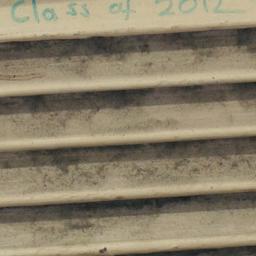 Class of 2012